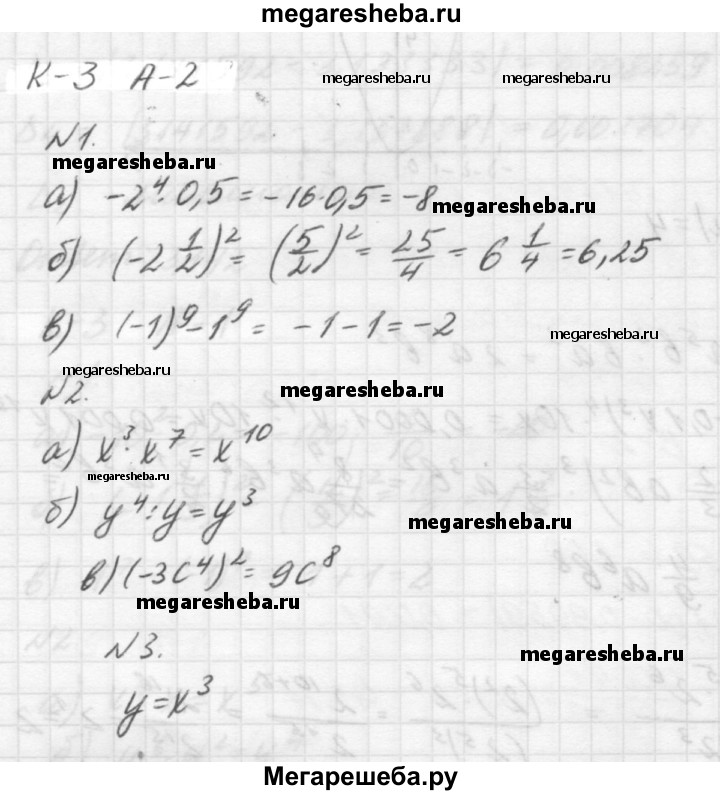 megaresheba.ru
К-3 А-2
megaresheba.ru megaresheba.ru
N1.
megaresheba.ru
а) -2⁴·0,5 = -16·0,5 = -8
megaresheba.ru
б) (-2 1/2)² = (5/2)² = 25/4 = 6 1/4 = 6,25
в) (-1)⁹ - 1⁹ = -1 - 1 = -2
megaresheba.ru
megaresheba.ru
N2.
megaresheba.ru
а) x³·x⁷ = x¹⁰
megaresheba.ru
б) y⁴:y = y³
megaresheba.ru
в) (-3c⁴)² = 9c⁸
megaresheba.ru
N3.
megaresheba.ru
y = x³
Мегарешеба.ру